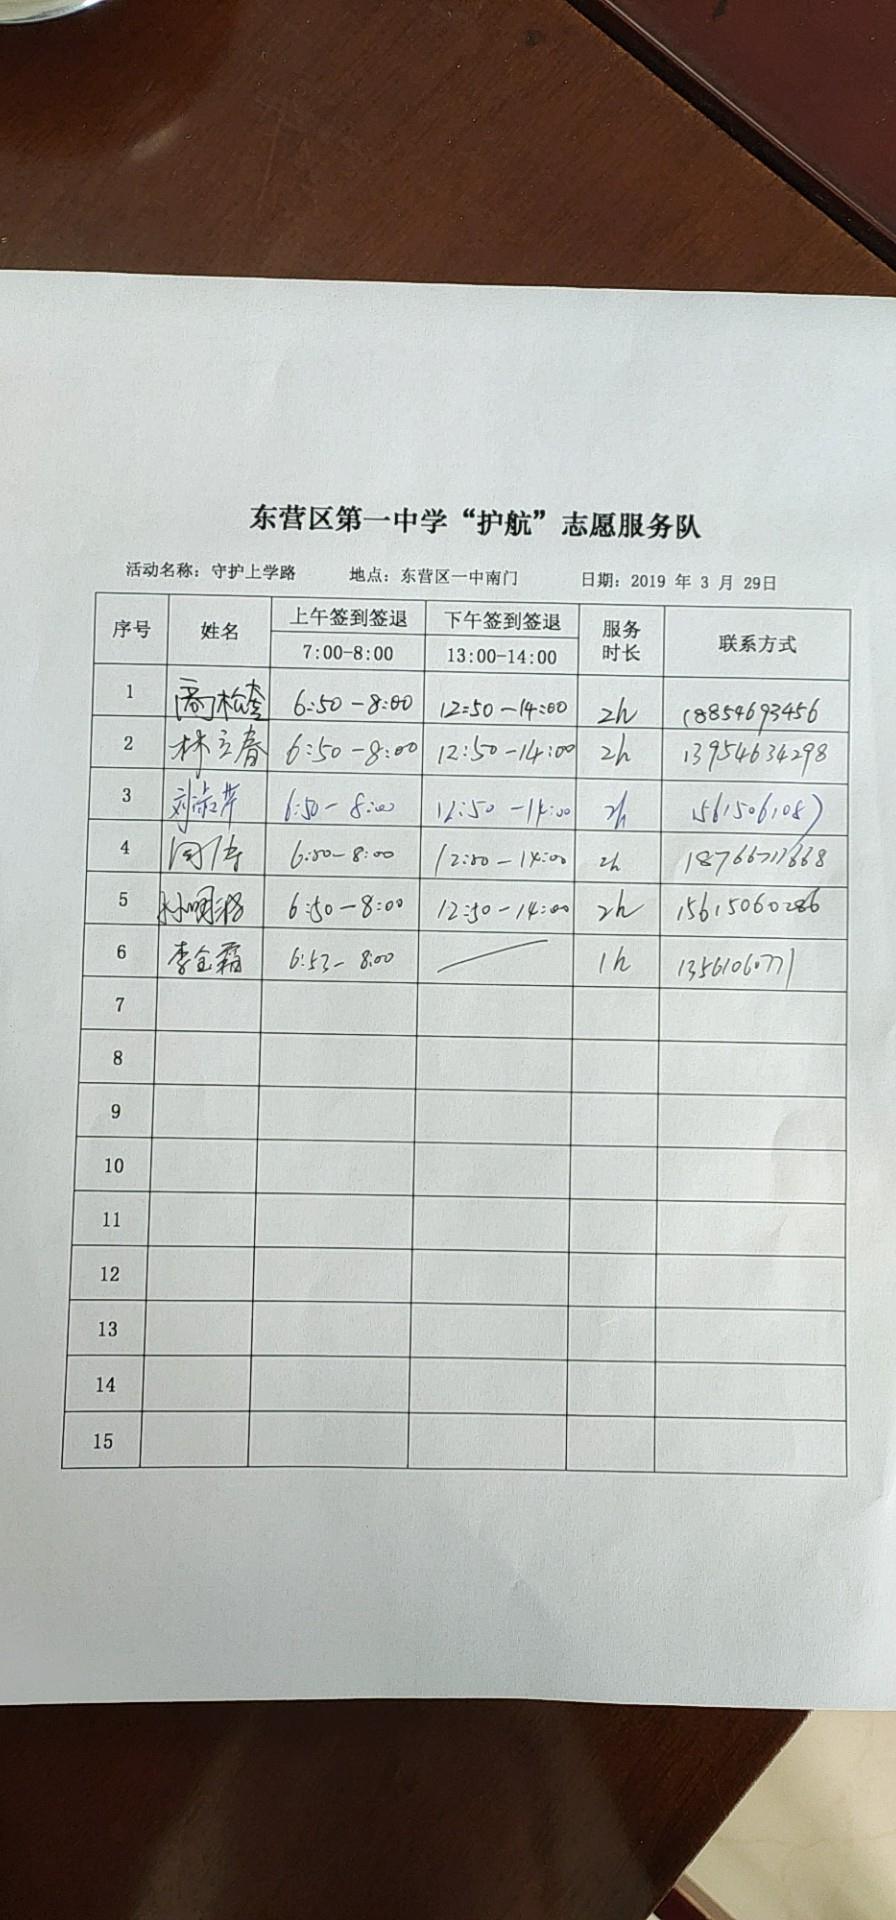 东营区第一中学“护航”志愿服务队
活动名称：守护上学路 地点：东营区一中南门 日期：2019 年 3 月 29日
序号 姓名 上午签到签退 下午签到签退 服务时长 联系方式
7:00-8:00 13:00-14:00
1 6:50-8:00 12:50-14:00 2h 18854693456
2 林立春 6:50-8:00 12:50-14:00 2h 13954634298
3 刘淑芹 6:50-8:00 12:50-14:00 2h 15615061087
4 6:50-8:00 12:50-14:00 2h
5 6:50-8:00 12:50-14:00 2h 15615060286
6 李金霜 6:53-8:00 1h 13561060771
7
8
9
10
11
12
13
14
15